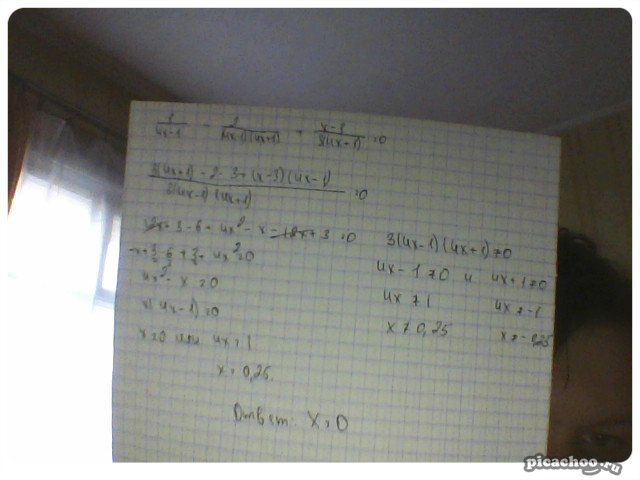 1/(4x-1) - 2/((4x-1)(4x+1)) + (x-3)/(3(4x+1)) = 0
(3(4x+1) - 2·3 + (x-3)(4x-1))/(3(4x-1)(4x+1)) = 0
12x+3-6+4x²-x-12x+3=0
-x+3-6+3+4x²=0
4x²-x=0
x(4x-1)=0
x=0 или 4x=1
x=0,25.
3(4x-1)(4x+1)≠0
4x-1≠0 и 4x+1≠0
4x≠1 4x≠-1
x≠0,25 x≠-0,25
Ответ: x=0
picachoo.ru